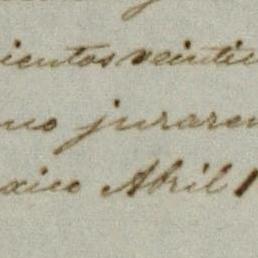 ientos veintic
mo juraren
xico Abril 1